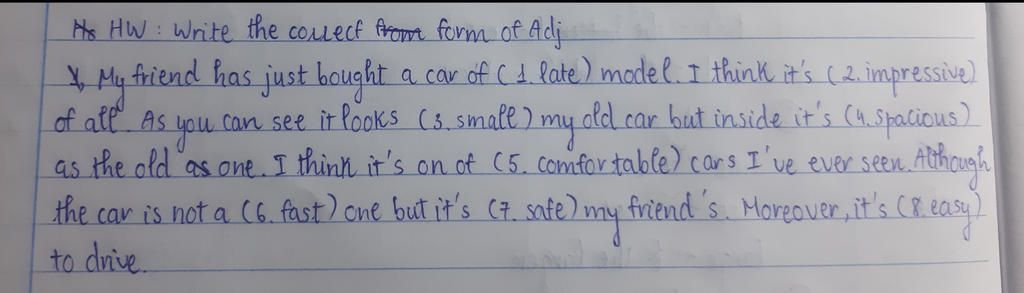 HW : Write the correct from form of Adj
My friend has just bought a car of ( 1. late ) model. I think it's ( 2. impressive )
of all. As you can see it looks ( 3. small ) my old car but inside it's ( 4. spacious )
as the old as one. I think it's on of ( 5. comfortable ) cars I've ever seen. Although
the car is not a ( 6. fast ) one but it's ( 7. safe ) my friend's. Moreover, it's ( 8. easy )
to drive.